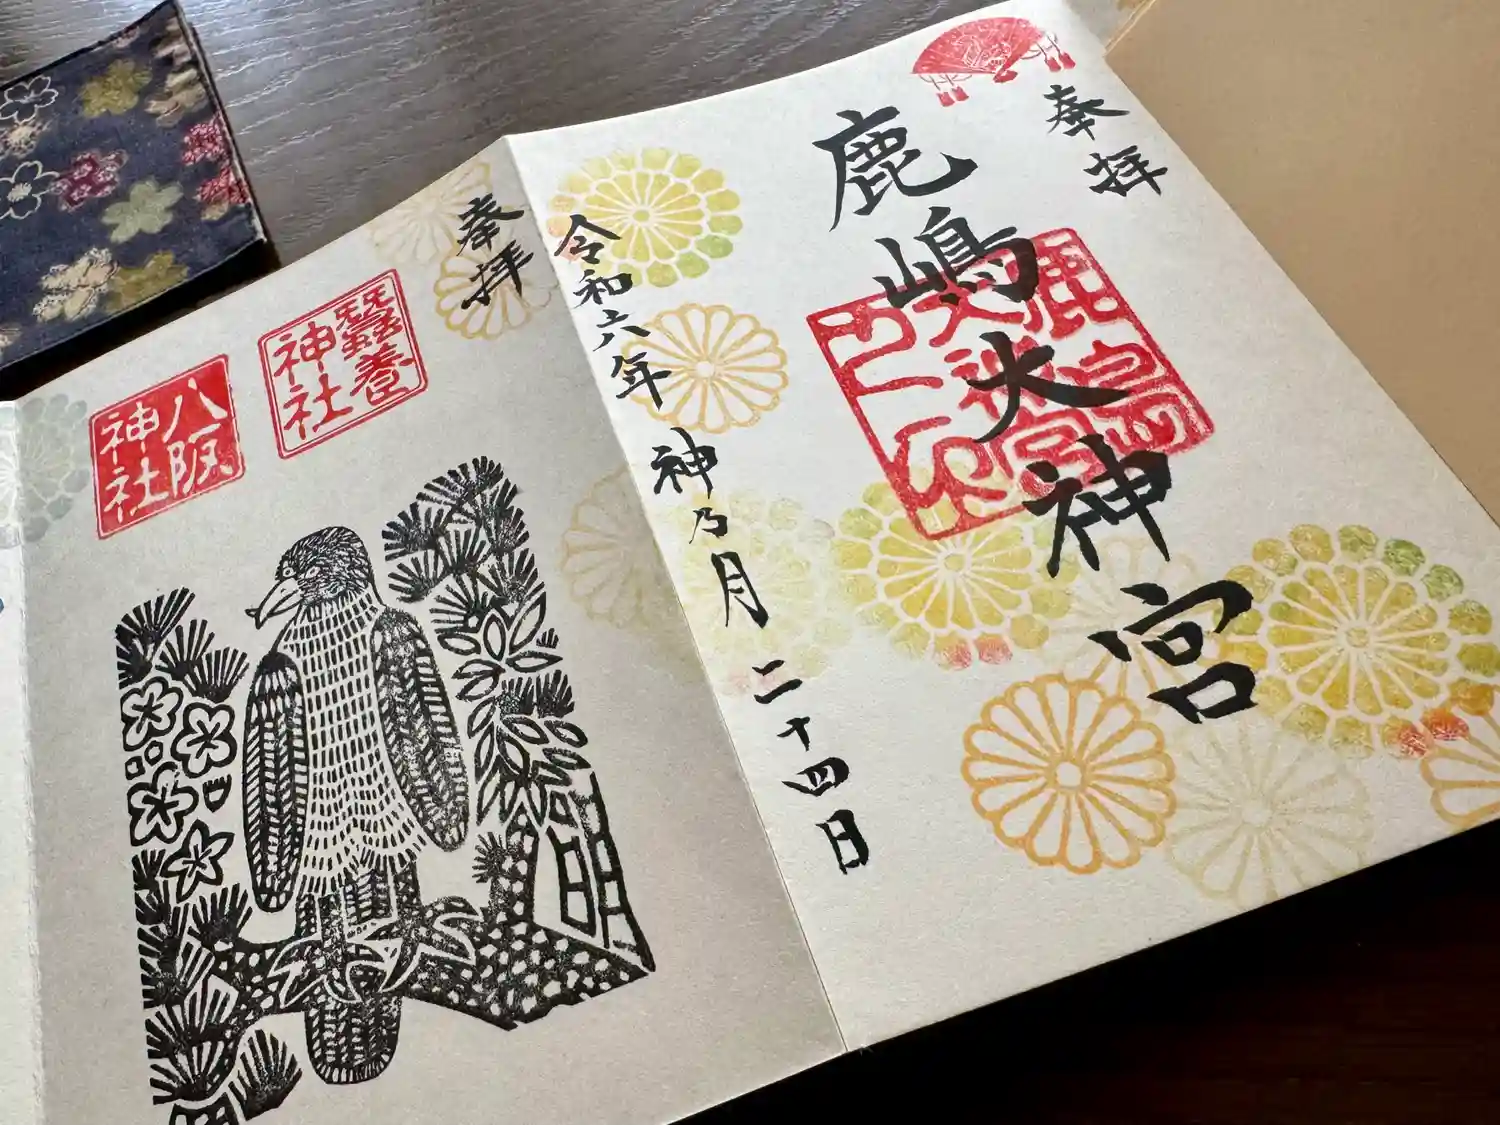 奉拝
鹿嶋大神宮
鹿島
大神宮
之印
令和六年 神乃月 二十四日
奉拝
蠶養
神社
八阪
神社